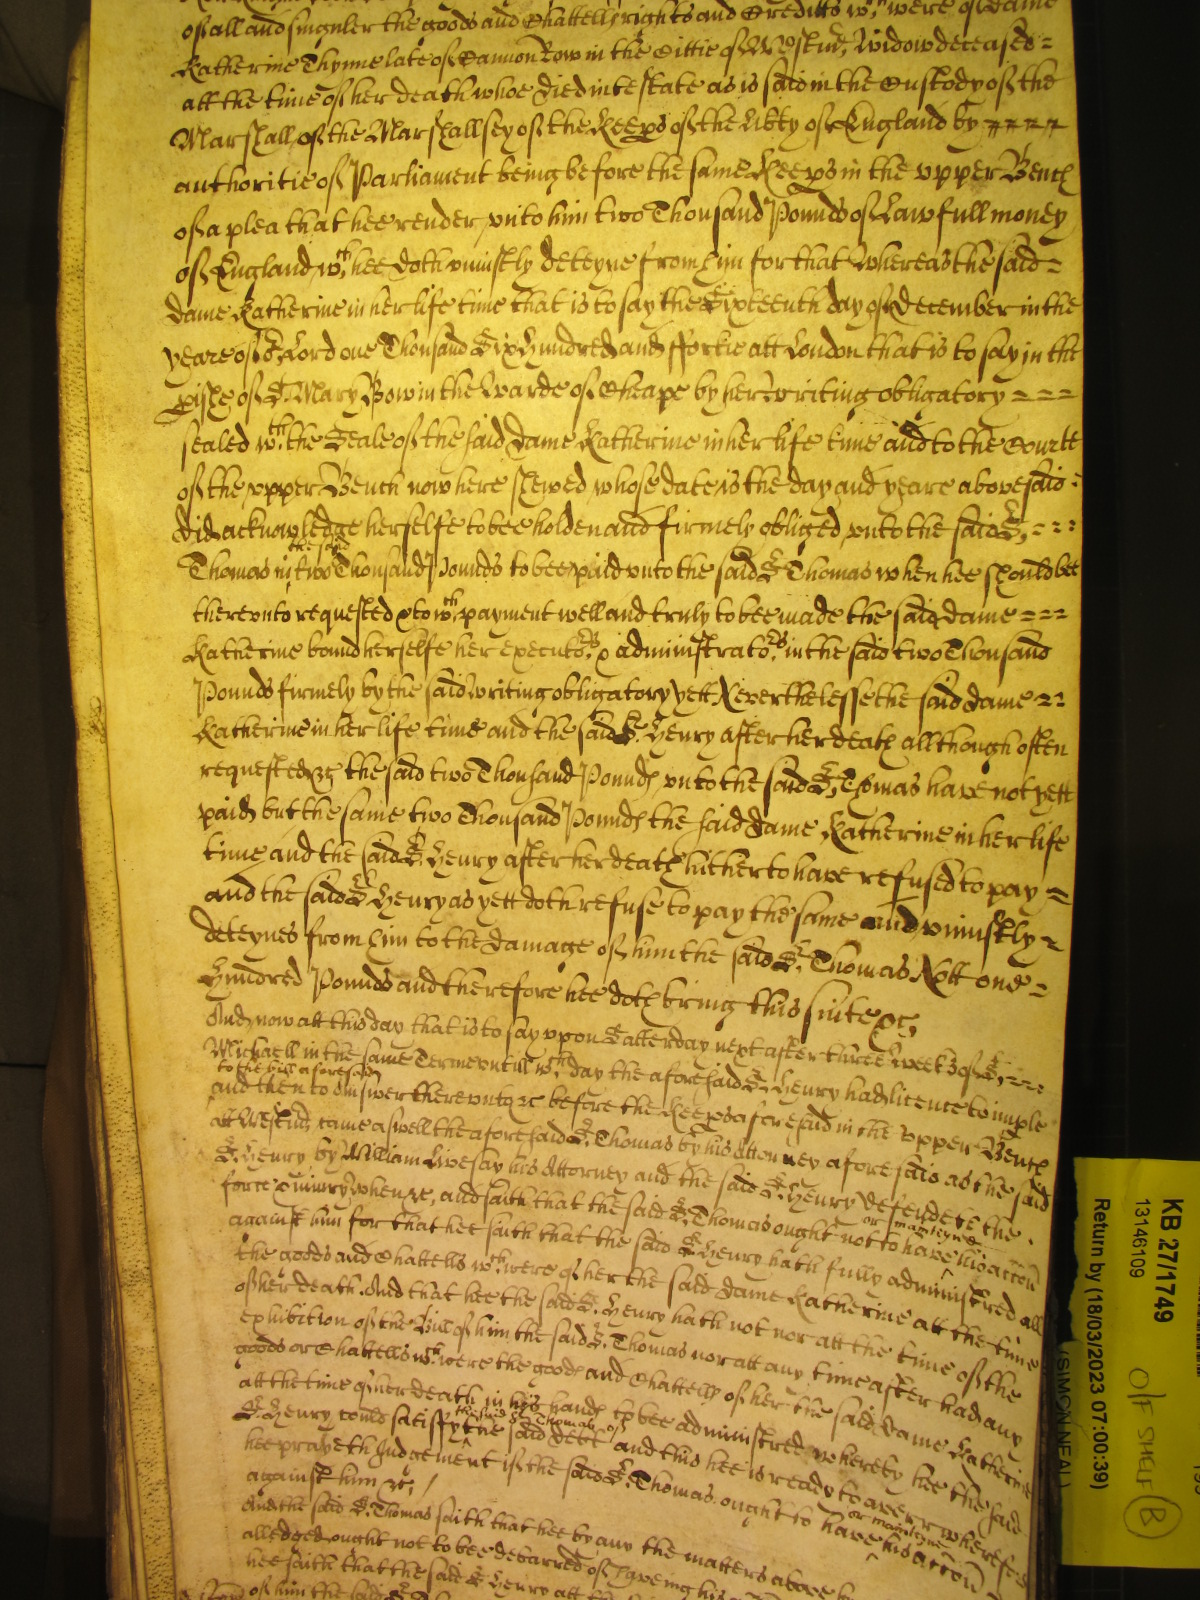 of all and singuler the goods and Chattells rights and Creditts wch were of Dame
Katherine Thynne late of Cannon Row in the Cittie of Westmr, Widow deceased =
att the time of her death whoe died intestate as is said in the Custody of the
Marshall of the Marshallsey of the Keeps of the Libty of England by
authoritie of Parliament being before the same Keeps in the vpper Bench
of a plea that hee render vnto him two Thousand Pounds of Lawfull money
of England wch hee doth vniustly deteyne from him for that Whereas the said =
dame Katherine in her life time that is to say the Sixteenth day of December in the
yeare of or Lord one Thousand Six Hundred and ffortie att London that is to say in the
pish of St. Mary Bow in the Warde of Cheape by her writing obligatory = = =
sealed wth the Seale of the said Dame Katherine in her life time and to the Courte
of the vpper Bench now here shewed whose date is the day and yeare abovesaid
did acknowledge herselfe to bee holden and firmely obliged vnto the said Sr
the said
Thomas in two Thousand Pounds to bee paid vnto the said Sr Thomas when hee should bee
therevnto requested & to wch payment well and truly to bee made the said dame = = =
Katherine bound herselfe her executors & administrators in the said two Thousand
Pounds firmely by the said writing obligatory yett Neverthelesse the said dame
Katherine in her life time and the said Sr. Henry after her death allthough often
requested &c the said two Thousand Pounds vnto the said Sr Thomas have not yett
paid but the same two Thousand Pounds the said dame Katherine in her life
time and the said Sr Henry after her death hitherto have refused to pay =
and the said Sr Henry as yett doth refuse to pay the same and vniustly
deteynes from him to the damage of him the said Sr. Thomas Nott one =
Hundred Pounds and therefore hee doth bring this suite &c,
And now att this day that is to say vpon Satterday next after three Weeks of St,
Michaell in the same Terme vntill wch day the aforesaid Sr. Henry had licence to imple
to the bill aforesaid
and then to answer therevnto &c before the Keeps aforesaid in the vpper Bench
att Westmr, came aswell the aforesaid Sr. Thomas by his Attorney aforesaid as the said
Sr. Henry by William Livesay his Attorney and the said Sr. Henry defendeth the
force & iniury when &c, and saith that the said Sr. Thomas ought not to have his accon
or mainteyne
against him for that hee saith that the said Sr Henry hath fully administred all
the goods and Chattells wch were of her the said Dame Katherine att the time
of her death. And that hee the said Sr. Henry hath not nor att the time of the
exhibition of the Bill of him the said Sr. Thomas nor att any time after had any
goods or Chattells wch were the goods and Chattells of her the said Dame Katherine
att the time of her death in his hands to bee administred whereby hee the said
Sr Henry could satisfy the said debt and this hee is ready to averr wherefore
the said Sr Thomas of
hee prayeth Judgement if the said Sr. Thomas ought to have his accon
or mainteyne
against him &c,
And the said Sr. Thomas saith that hee by any the matters above
alledged ought not to bee debarred of haveing his
hee saith that the said Sr Henry att the
of him the said
KB 27/1749
13146109
Return by (18/03/2023 07:00:39)
(SIMON NEAL)
O/F SHELF B